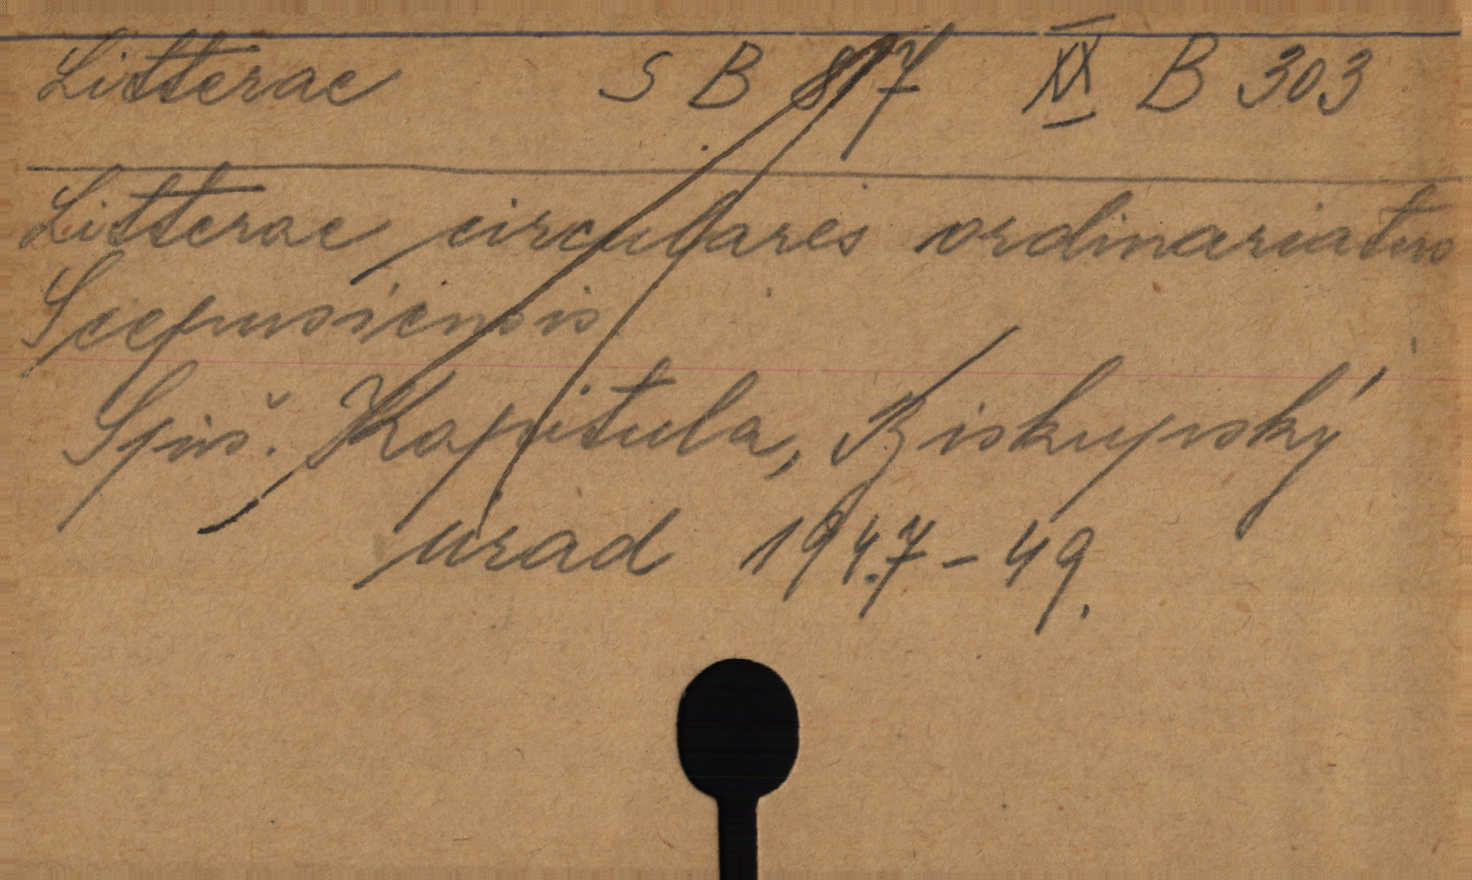 Litterae S B 817 XX B 303
Litterae circulares ordinariatus
Scepusiensis
Spiš. Kapitula, Biskupský
úrad 1947-49.